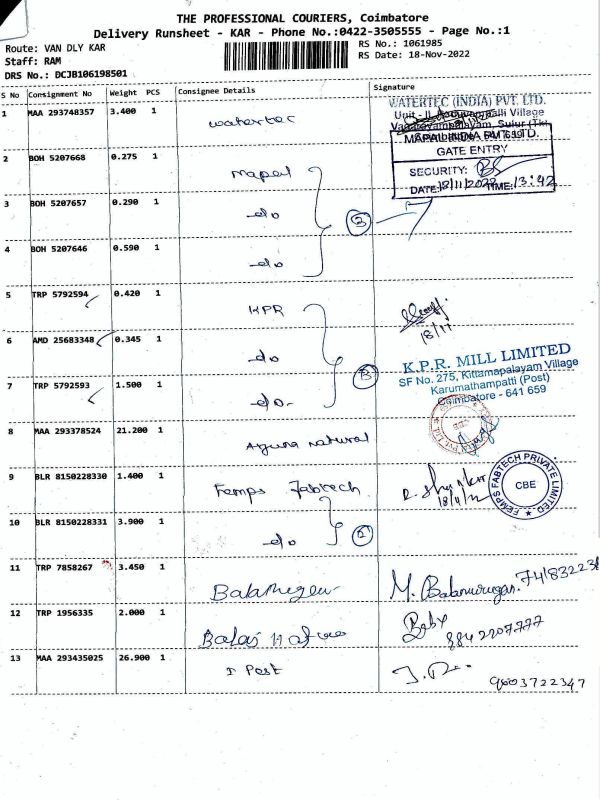 THE PROFESSIONAL COURIERS, Coimbatore
Delivery Runsheet - KAR - Phone No.:0422-3505555 - Page No.:1
Route: VAN DLY KAR
Staff: RAM
DRS No.: DCJB106198501
RS No.: 1061985
RS Date: 18-Nov-2022
S No Consignment No Weight PCS Consignee Details Signature
1 MAA 293748357 3.400 1 watertec
WATERTEC (INDIA) PVT. LTD.
Unit - II, Village
Sulur (Tk)
MAPAL INDIA PVT. LTD.
GATE ENTRY
SECURITY:
DATE: 18/11/2022 TIME: 13:42
2 BOH 5207668 0.275 1 mapal
3 BOH 5207657 0.290 1 -do 3
4 BOH 5207646 0.590 1 -do
5 TRP 5792594 0.420 1 KPR
18/11
6 AMD 25683348 0.345 1 -do
K.P.R. MILL LIMITED
SF No. 275, Kittampalayam Village
Karumathampatti (Post)
Coimbatore - 641 659
7 TRP 5792593 1.500 1 -do- 3
8 MAA 293378524 21.200 1 natural
9 BLR 8150228330 1.400 1 Femps Fabtech
FEMPS FABTECH PRIVATE LIMITED
CBE
10 BLR 8150228331 3.900 1 -do 2
11 TRP 7858267 3.450 1
M. Balamurugan
12 TRP 1956335 2.000 1
Baby
8842207777
13 MAA 293435025 26.900 1 I Post
9603722347